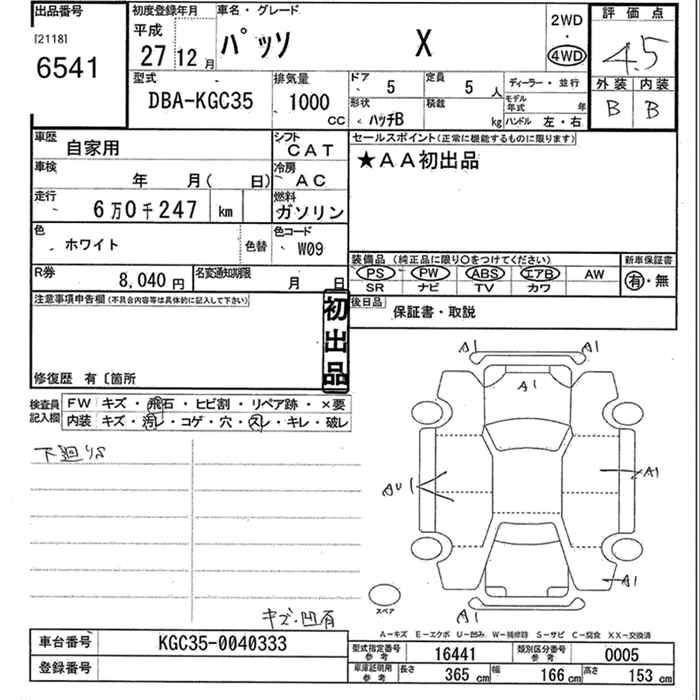 出品番号
[2118]
6541
初度登録年月
平成
27 12 月
車名・グレード
パッソ X
2WD
・
4WD
評価点
4.5
外装 内装
B B
型式
DBA-KGC35
排気量
1000
CC
ドア 5
定員 5 人
ディーラー・並行
形状 ハッチB
積載 kg
モデル年式 年
ハンドル 左・右
車歴 自家用
シフト CAT
車検 年 月( 日)
冷房 AC
走行 6万0千247 km
燃料 ガソリン
色 ホワイト
色替
色コード W09
R券 8,040 円
名変通知期限 月 日
セールスポイント(正常に機能するものに限ります)
★AA初出品
装備品(純正品に限り○をつけてください)
新車保証書
PS PW ABS エアB AW
有・無
SR ナビ TV カワ
後日品
保証書・取説
注意事項申告欄(不具合内容等は具体的に記入して下さい)
初出品
修復歴 有〔箇所
検査員記入欄
FW キズ・飛石・ヒビ割・リペア跡・×要
内装 キズ・汚レ・コゲ・穴・スレ・キレ・破レ
下廻りS
A1 A1
A1
AU1
A1
A1
A1
スペア
キズ・凹有
A−キズ E−エクボ U−凹み W−補修跡 S−サビ C−腐食 XX−交換済
車台番号 KGC35-0040333
登録番号
型式指定番号 参考 16441
類別区分番号 参考 0005
車庫証明用 参考 長さ 365 cm 幅 166 cm 高さ 153 cm